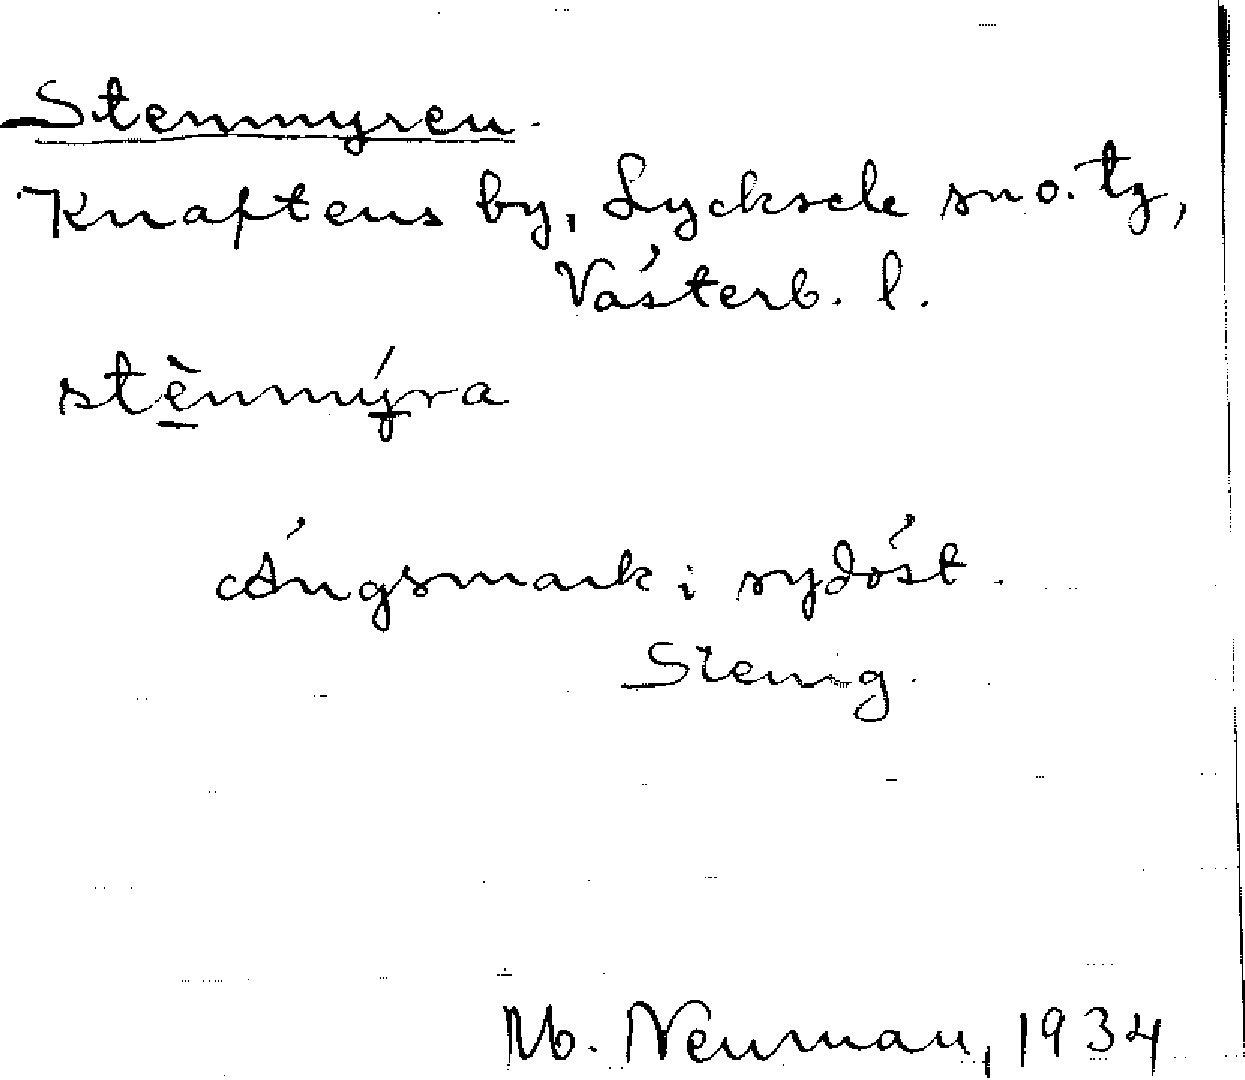 Stenmyren.
Knaftens by, Lycksele sn o. tg,
Västerb. l.
stè̱nmý̱ra
Ängsmark i sydöst.
Stenig.
M. Neuman, 1934